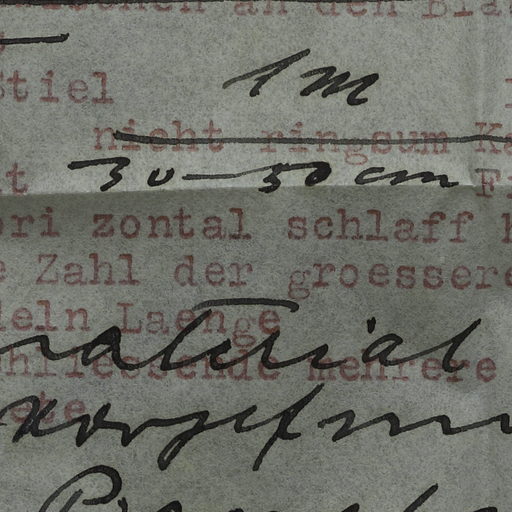 an den
Stiel 1 m
nicht ringsum
30-50 cm
ori zontal schlaff
Zahl der groessere
deln Laenge
material
hliessende mehrere